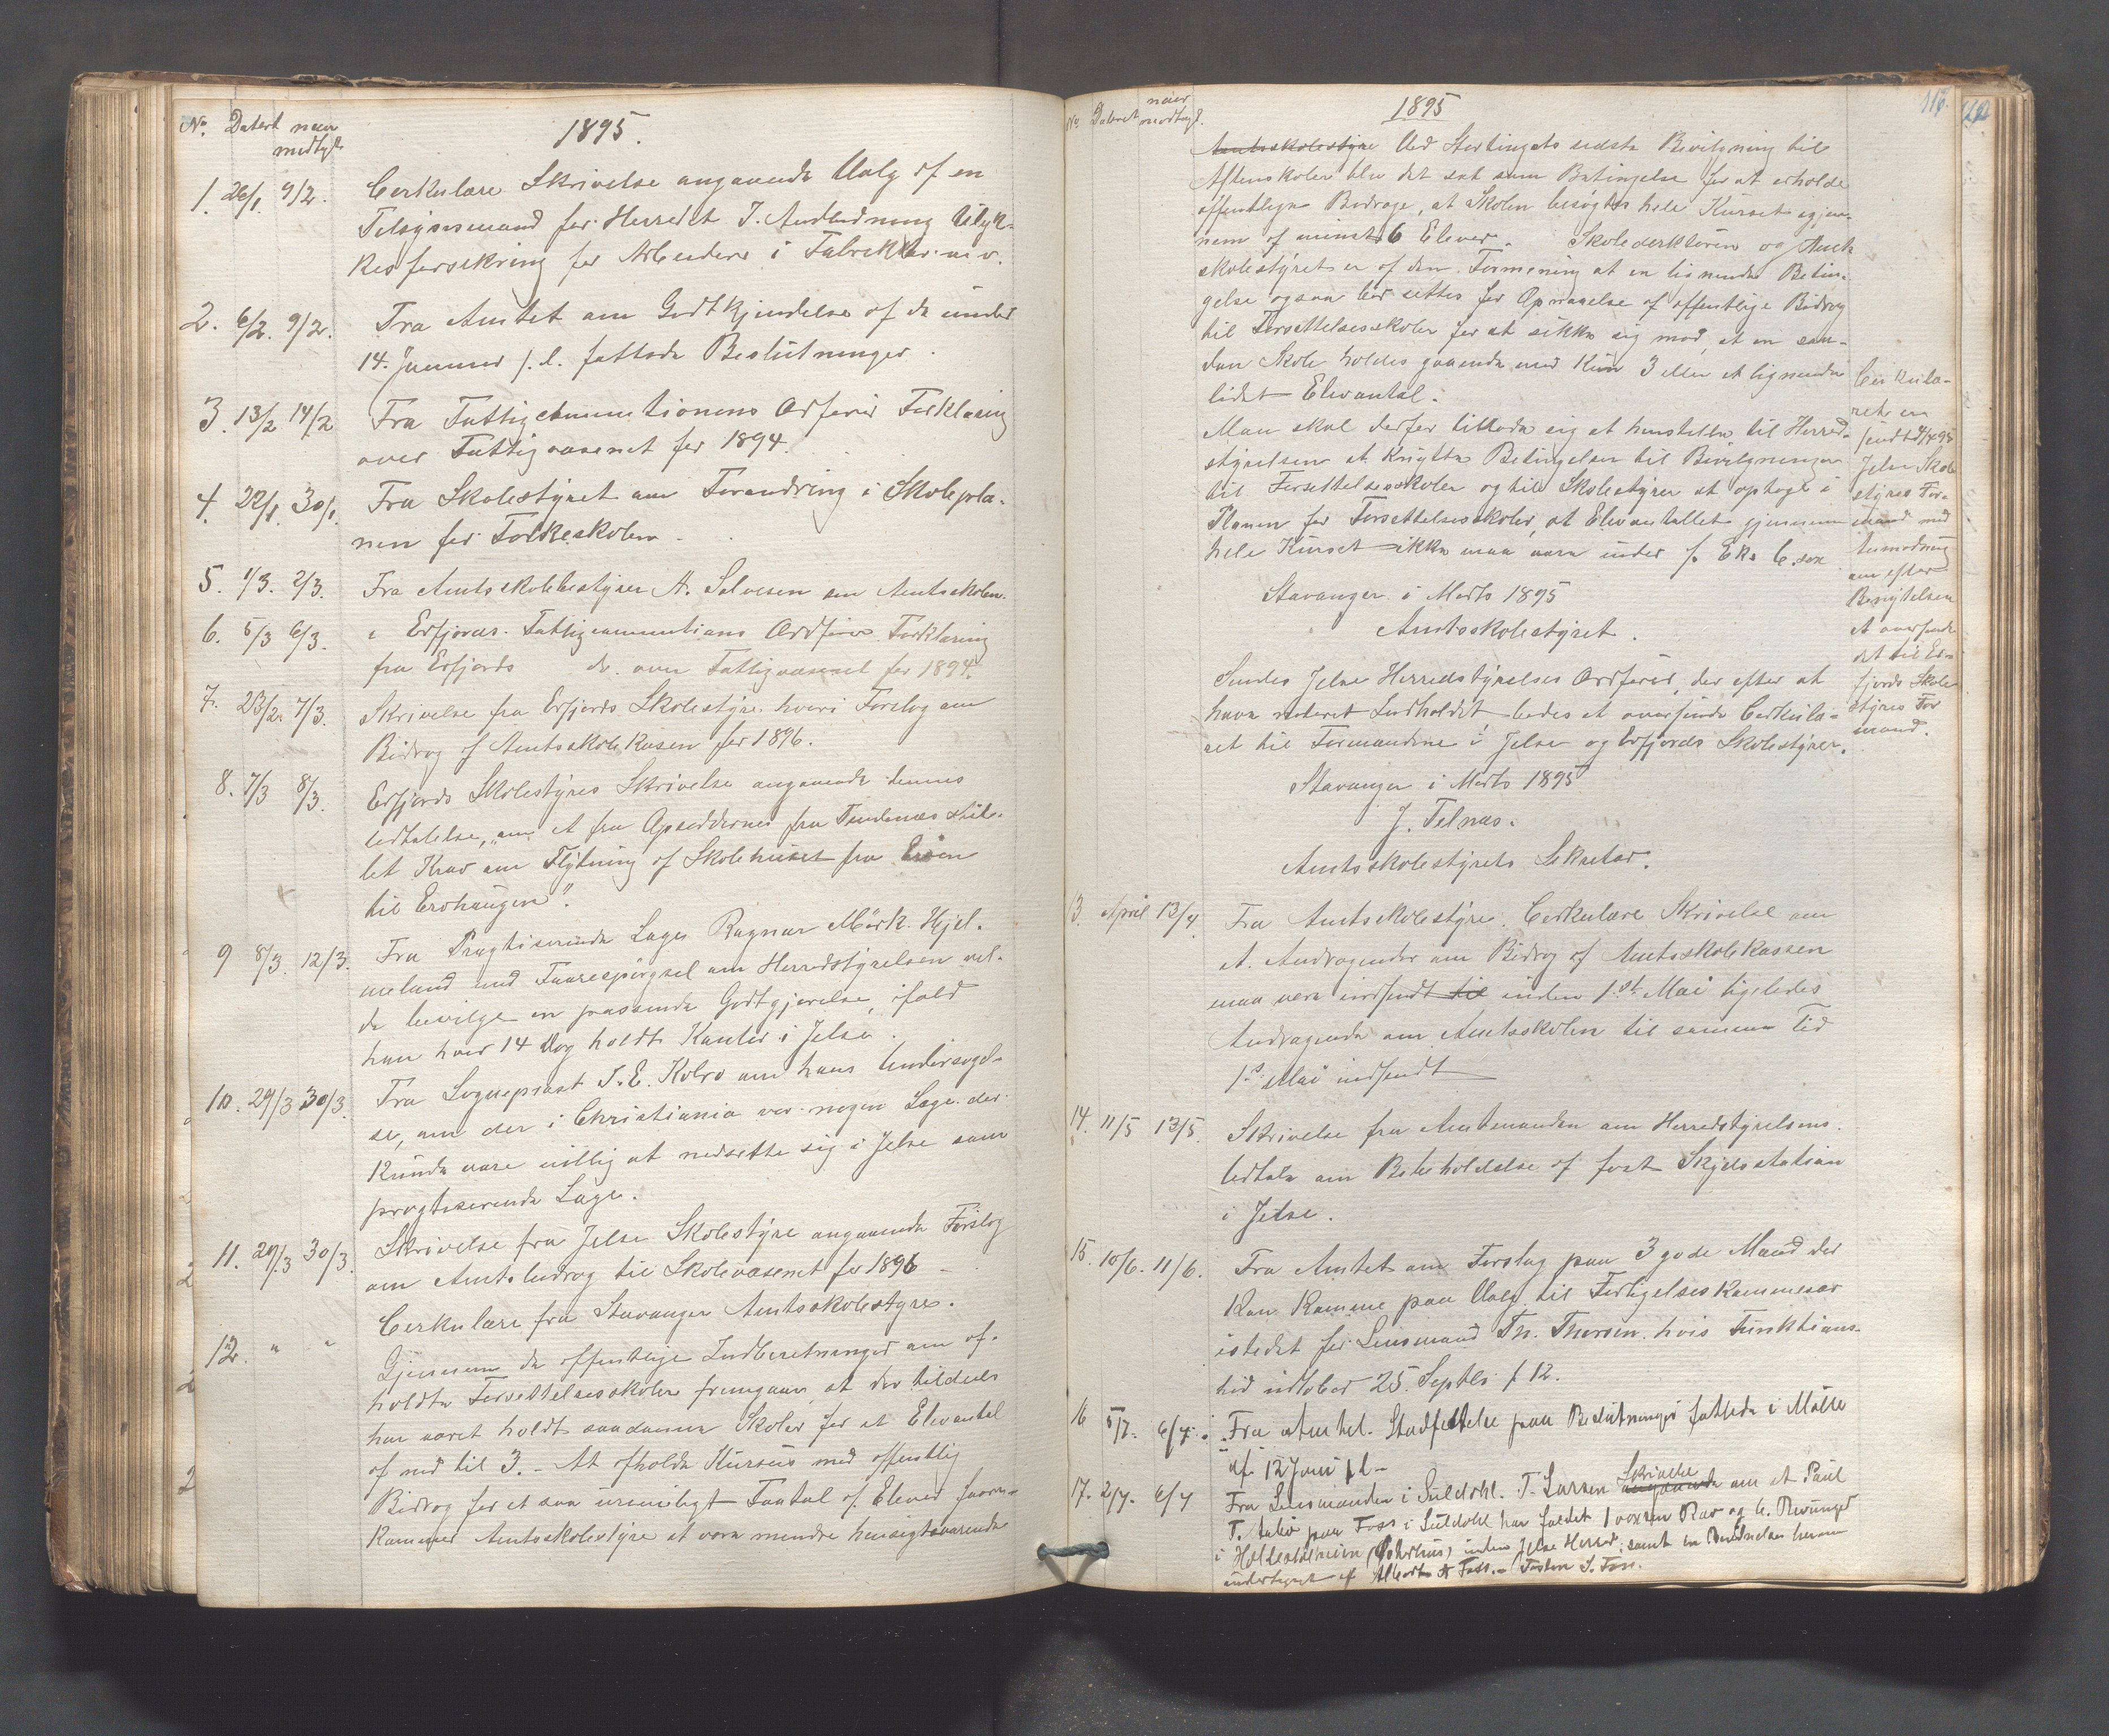 No. Datert naar modtgt.
1895.
1. 26/1. 9/2. Cerkulære Skrivelse angaaende Valg af en
Tilsynsmand for Herredet I. Anledning Ulyk-
kesforsikring for Arbeidere i Fabrikker m. v.
2. 6/2. 9/2. Fra Amtet om Godtkjendelse af de under
14. Januar s. l. fattede Beslutninger.
3. 13/2 14/2 Fra Fattigcommitionens Ordfører Forklaring
over Fattigvæsenet for 1894.
4. 22/1. 30/1. Fra Skolestyret om Forandring i Skolepla-
nen for Folkeskolen.
5. 1/3. 2/3. Fra Amtsskolebestyrer A. Salvesen om Amtsskolen.
6. 5/3 6/3. Erfjords Fattigcommitions Ordfører Forklaring
fra Erfjords do. over Fattigvæsenet for 1894.
7. 23/2. 7/3. Skrivelse fra Erfjords Skolestyre hvori Forslag om
Bidrag af Amtsskolekasen for 1896.
8. 7/3 8/3. Erfjords Skolestyres Skrivelse angaaende dennes
Udtalelse, "om et fra Opsidderne fra Tindenæs stil-
let Krav om Flytning af Skolehuset fra Eröen
til Erohaugen".
9 8/3. 12/3. Fra Pragtiserende Læge Ragnar Mörk. Hjel-
meland med Foorespörgsel om Herredstyrelsen vel-
de bevilge en passende Godtgjørelse, ifald
han hver 14 Dag holdt Kontor i Jelse.
10. 29/3 30/3. Fra Sogneprest T. E. Kolrø om hans Undersøgel-
se, om der i Christiania var nogen Læge der
kunde være villig at nedsætte sig i Jelse som
pragtiserende Læge.
11. 29/3 30/3. Skrivelse fra Jelse Skolestyre angaaende Forslag
om Amtsbidrag til Skolevæsenet for 1896
12. " " Cerkulære fra Stavanger Amtsskolestyre.
Gjennem de offentlige Indberetninger om af-
holdte Forsettelsesskoler fremgaar, at der tildels
har været holdt saadanne Skoler for et Elevantal
af ned til 3. - At afholde Kursus med offentlig
Bidrag for et saa urimeligt Faatal af Elever forre-
kommer Amtsskolestyre at være mindre hensigtsvarende
No Dateret naar modtagt.
1895
Amtsskolestyre Ved Stortingets sidste Bevilgning til
Aftenskoler blev det sat som Betingelse for at erholde
offentlige Bidrage, at Skolen besøgtes hele Kurset igjen-
nem af minst 6 Elever. Skoledirktören og Amts
skolestyret er af den Formening at en lignende Betin-
gelse ogsaa bör settes for Opnaaelse af offentlige Bidrag
til Forsettelsesskoler for at sikke sig mod, at en saa-
dan Skole holdes gaaende med kun 3 eller et lignende
lidet Elevantal.
Man skal derfor tillade sig at henstille til Herred-
styrelsen at knytte Betingelsen til Bevilgninger
til Forsettelsesskoler og til Skolestyrer at optage i
Planen for Forsettelsesskoler, at Elevantallet gjennem
hele Kurset ikke maa være under f. Eks 6. sex
Stavanger i Marts 1895
Amtsskolestyret.
Sendes Jelse Herredstyrelses Ordfører, der efter at
have noteret Indholdet bedes at oversende Cerkulæ-
ret til Formændene i Jelse og Erfjords Skolestyrer.
Stavanger i Marts 1895
J. Telnæs.
Amtsskolestyrets Sekretær.
Cerkulæ-
ret er
sendt 4/4 95
Jelse Skole
styres For-
mand med
Anmodning
om efter
Benyttelsen
at oversende
det til Er-
fjords Skole
styres For
mand.
13. April 13/4 Fra Amtsskolestyre. Cerkulære Skrivelse om
at. Andragender om Bidrag af Amtsskolekassen
maa være indsendt til inden 1.st Mai ligeledes
Andragende om Amtsskolen til samme Tid
1.st Mai indsendt
14. 11/5 13/5. Skrivelse fra Amtmanden om Herredstyrelsens
Udtale om Beteholdelse af fast Skjdsstation
i Jelse.
15. 10/6. 11/6. Fra Amtet om Forslag paa 3 gode Mænd der
kan komme paa Valg til Forligelseskommesær
istedet for Lensmand Th. Thorsen hvis Funktions-
tid udlober 25. Septbr. f 12.
16 5/7. 6/7. Fra Amtet. Stadfestelse paa Beslutninger fattede i Møde
af. 12 Juni s l -
17. 2/7. 6/7 Fra Lensmanden i Suldahl. T. Larsen Skrivelse angaaende om at Paul
T. paa Foss i Suldahl har fældet 1 voxen Rev og 6. Revunger
i inden Jelse Herred, samt en herom
undertegnet af Albert A Foss. - Torsten S. Foss.